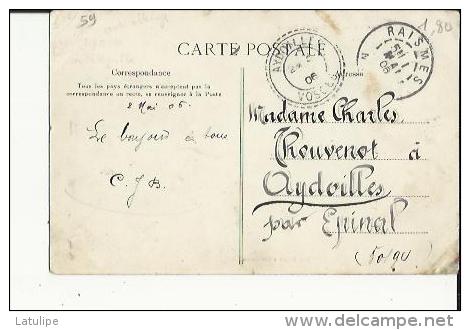 59
1,80
CARTE POSTALE
AYDOILLES
06
VOSGES
RAISMES
06
Correspondance
Adresse
Tous les pays étrangers n'acceptent pas la
correspondance au recto, se renseigner à la Poste
2 Mai 06.
Le bonjour à tous
C.J.B.
Madame Charles
Thouvenot à
Aydoilles
par Epinal
(Vosges)
Latulipe
http://www.delcampe.net